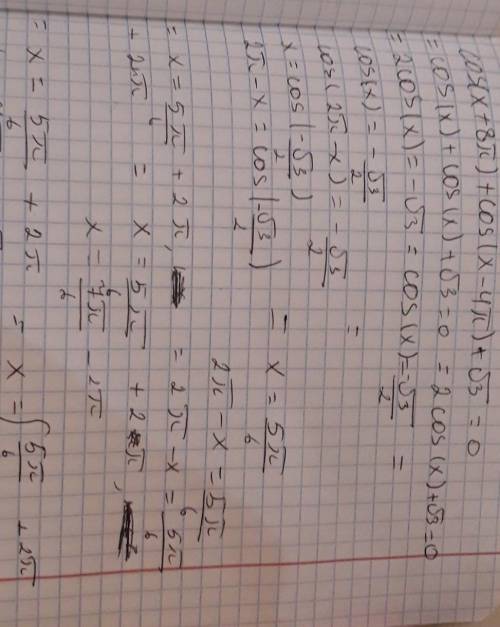 cos(x+8π)+cos(x-4π)+√3=0
=cos(x)+cos(x)+√3=0 = 2cos(x)+√3=0
=2cos(x)=-√3 = cos(x)=-√3/2 =
cos(x)=-√3/2
cos(2π-x)=-√3/2 =
x=cos(-√3/2)
2π-x=cos(-√3/2) = x=5π/6
2π-x=5π/6
=x=5π/6+2π, =2π-x=5π/6
+2π = x=5π/6+2π,
x=7π/6-2π
=x=5π/6+2π = x=∫5π/6+2π